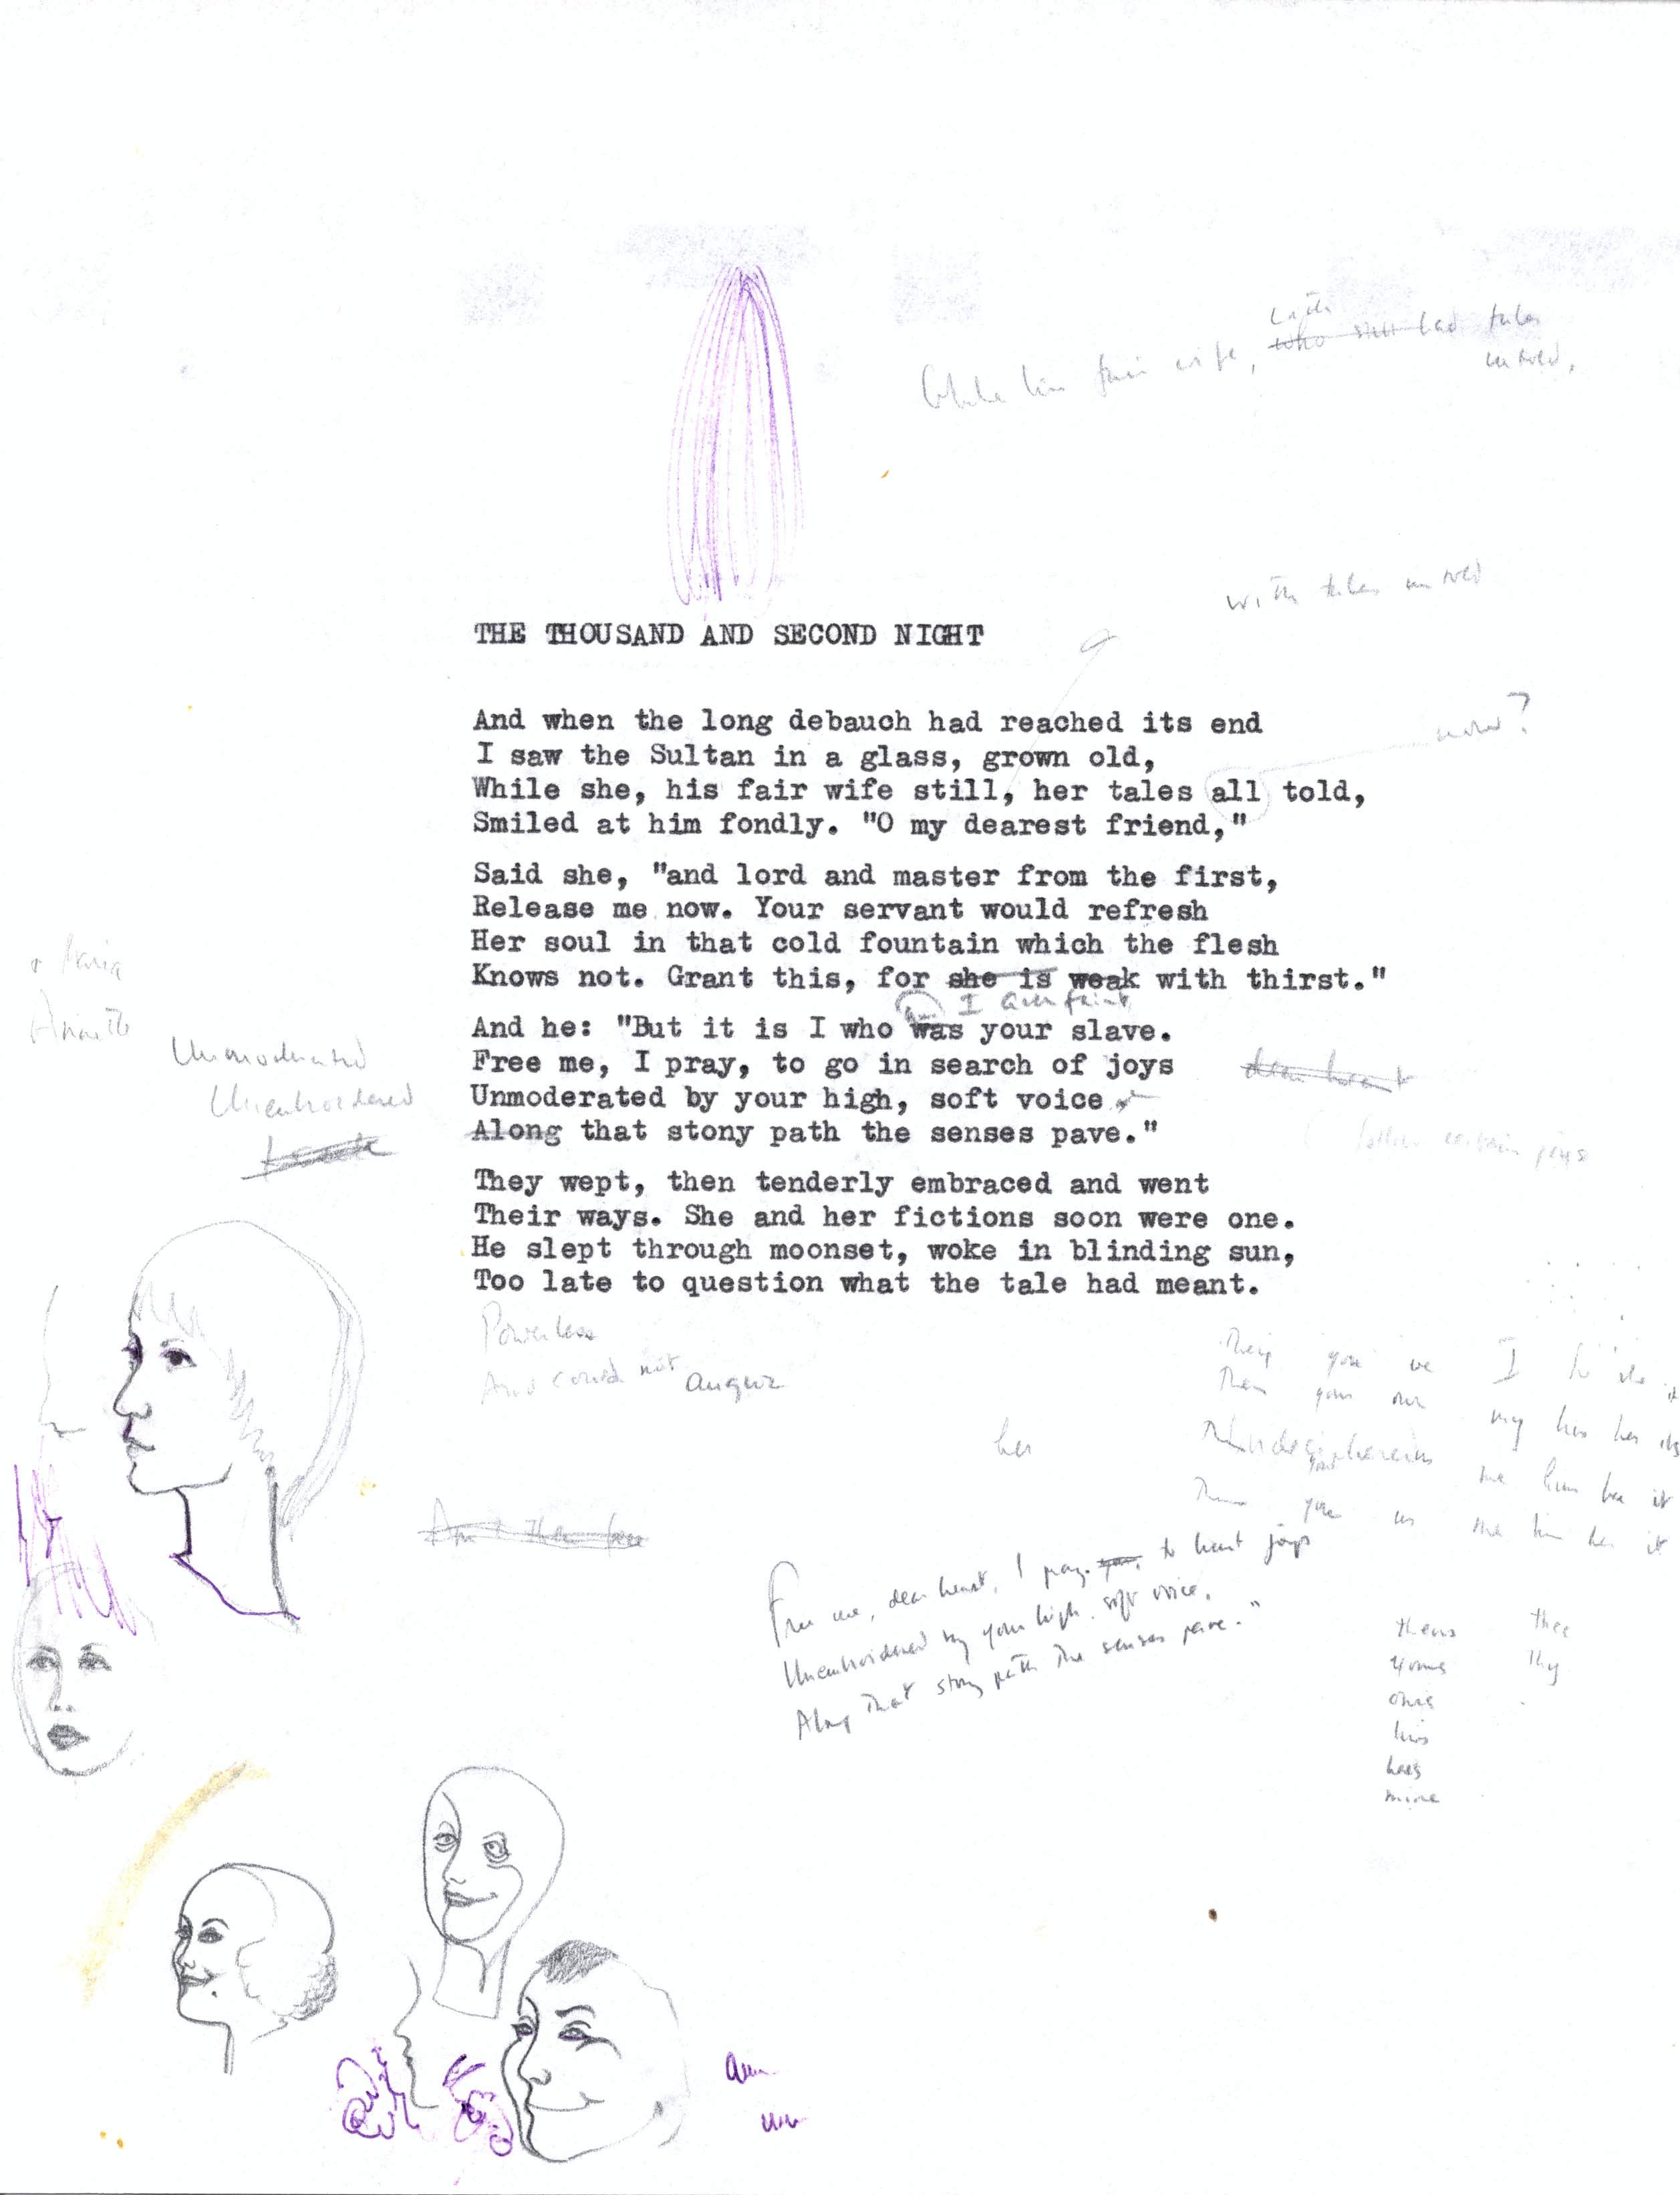 with
While his fair wife, who still had tales
untold,
with tales untold
THE THOUSAND AND SECOND NIGHT
now?
And when the long debauch had reached its end
I saw the Sultan in a glass, grown old,
While she, his fair wife still, her tales all told,
Smiled at him fondly. "O my dearest friend,"
Said she, "and lord and master from the first,
Release me now. Your servant would refresh
Her soul in that cold fountain which the flesh
Knows not. Grant this, for she is weak with thirst."
I am faint
And he: "But it is I who was your slave.
Free me, I pray, to go in search of joys
dear heart
Unmoderated by your high, soft voice
Along that stony path the senses pave."
certain joys
Unmoderated
Unembroidered
They wept, then tenderly embraced and went
Their ways. She and her fictions soon were one.
He slept through moonset, woke in blinding sun,
Too late to question what the tale had meant.
Powerless
And could not augur
They you we I he she it
Their your our my his her its
her
me him her it
Them you us me him her it
And then
Free me, dear heart, I pray to hunt joys
Unembroidered by your high, soft voice,
Along that stony path the senses pave."
theirs thee
yours thy
ours
his
hers
mine